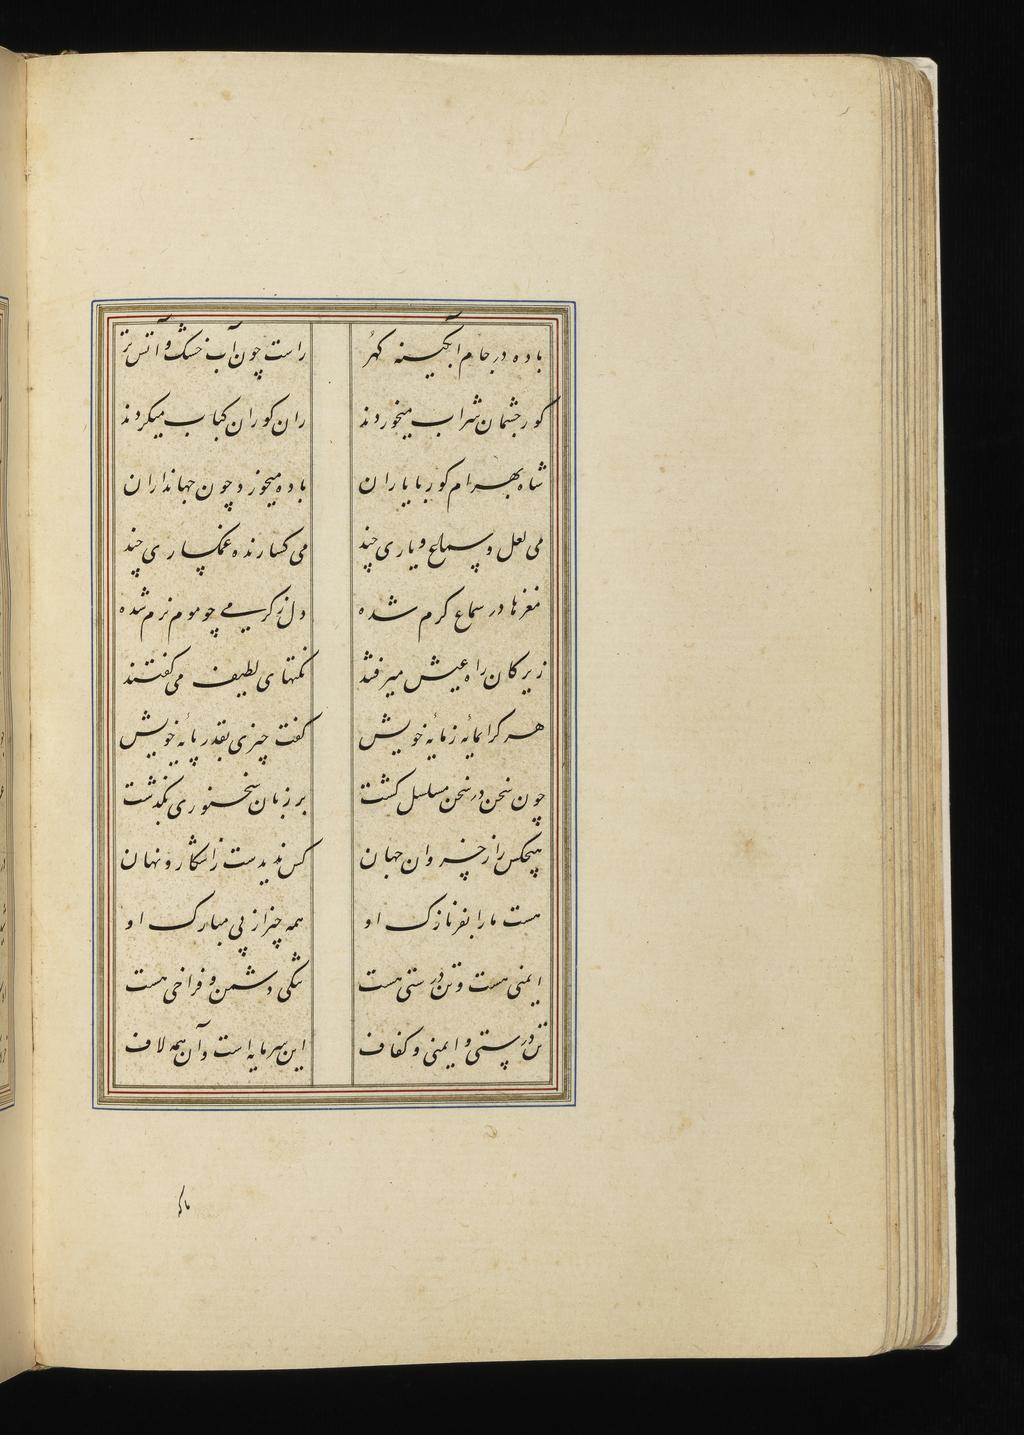 باده در جام آبگینه گهر راست چون آب خشک و آتش تر
گورچشمان شراب میخوردند ران گوران کباب میکردند
شاه بهرام گور با یاران باده میخورد چون جهانداران
می لعل و سماع و یاری چند می گسارنده غمگساری چند
مغزها در سماع گرم شده دل ز گرمی چو موم نرم شده
زیرکان راه عیش میرفتند نکتهای لطیف می گفتند
هر گرانمایه ز مایهٔ خویش گفت چیزی بقدر پایهٔ خویش
چون سخن در سخن مسلسل گشت بر زبان سخنوری بگذشت
هیچکس را ز خسروان جهان کس ندیدست زاشکار و نهان
هست ما را بفر نازک او همه چیز از پی مبارک او
ایمنی هست و تن درستی هست تنگی دشمن و فراخی هست
تن درستی و ایمنی و کفاف این سرمایه است وآن همه لاف
ما که